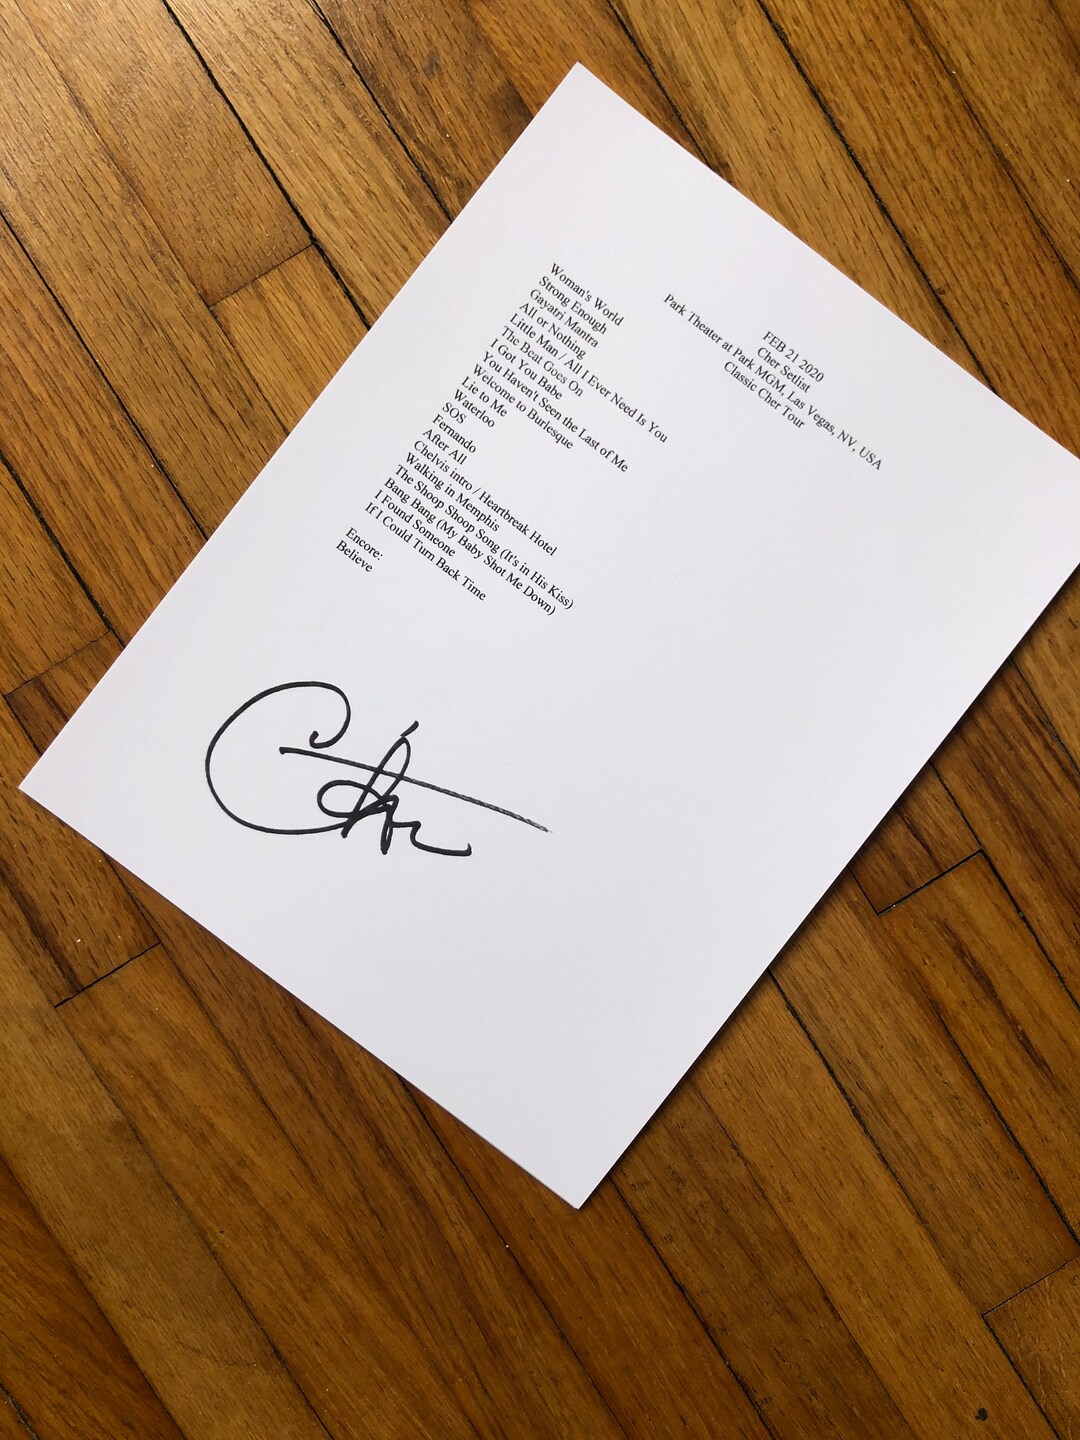 FEB 21 2020
Cher Setlist
Park Theater at Park MGM, Las Vegas, NV, USA
Classic Cher Tour
Woman's World
Strong Enough
Gayatri Mantra
All or Nothing
Little Man / All I Ever Need Is You
The Beat Goes On
I Got You Babe
You Haven't Seen the Last of Me
Welcome to Burlesque
Lie to Me
Waterloo
SOS
Fernando
After All
Chelvis intro / Heartbreak Hotel
Walking in Memphis
The Shoop Shoop Song (It's in His Kiss)
Bang Bang (My Baby Shot Me Down)
I Found Someone
If I Could Turn Back Time
Encore:
Believe
Cher